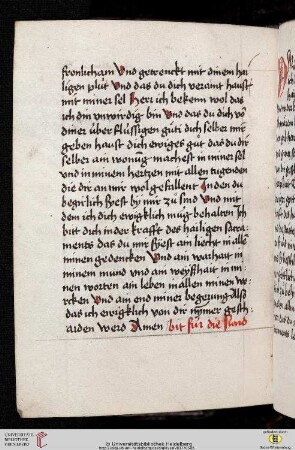 fronlichäm Und getrenckt mit dinem hai
ligen plüt Und das du dich veraint haust
mit miner sel Herr ich bekenn wol das
ich din unwirdig bin Und das du dich võ
diner über flüssigen güti dich selber mir
geben haust dich ewigs güt das du dir
selber ain wonüg machest in miner sel
und in minem hertzen mit allen tugenden
die dir an mir wol gefallent In den du
begirlich syest by mir zü sind Und mit
dem ich dich ewigklich müg behalten Ich
bitt dich in der krafft des hailigen sacra-
ments das du mir syest ain liecht in alle
minen gedencken Und ain warhait in
minem mund und ain weyßhait in mi
nen worten ain leben in allen minen we-
rcken Und ain end miner begerung Also
das ich ewigklich von dir nymer gesch-
aiden werd Amen bit für die
UNIVERSITÄTS-
BIBLIOTHEK
HEIDELBERG
© Universitätsbibliothek Heidelberg